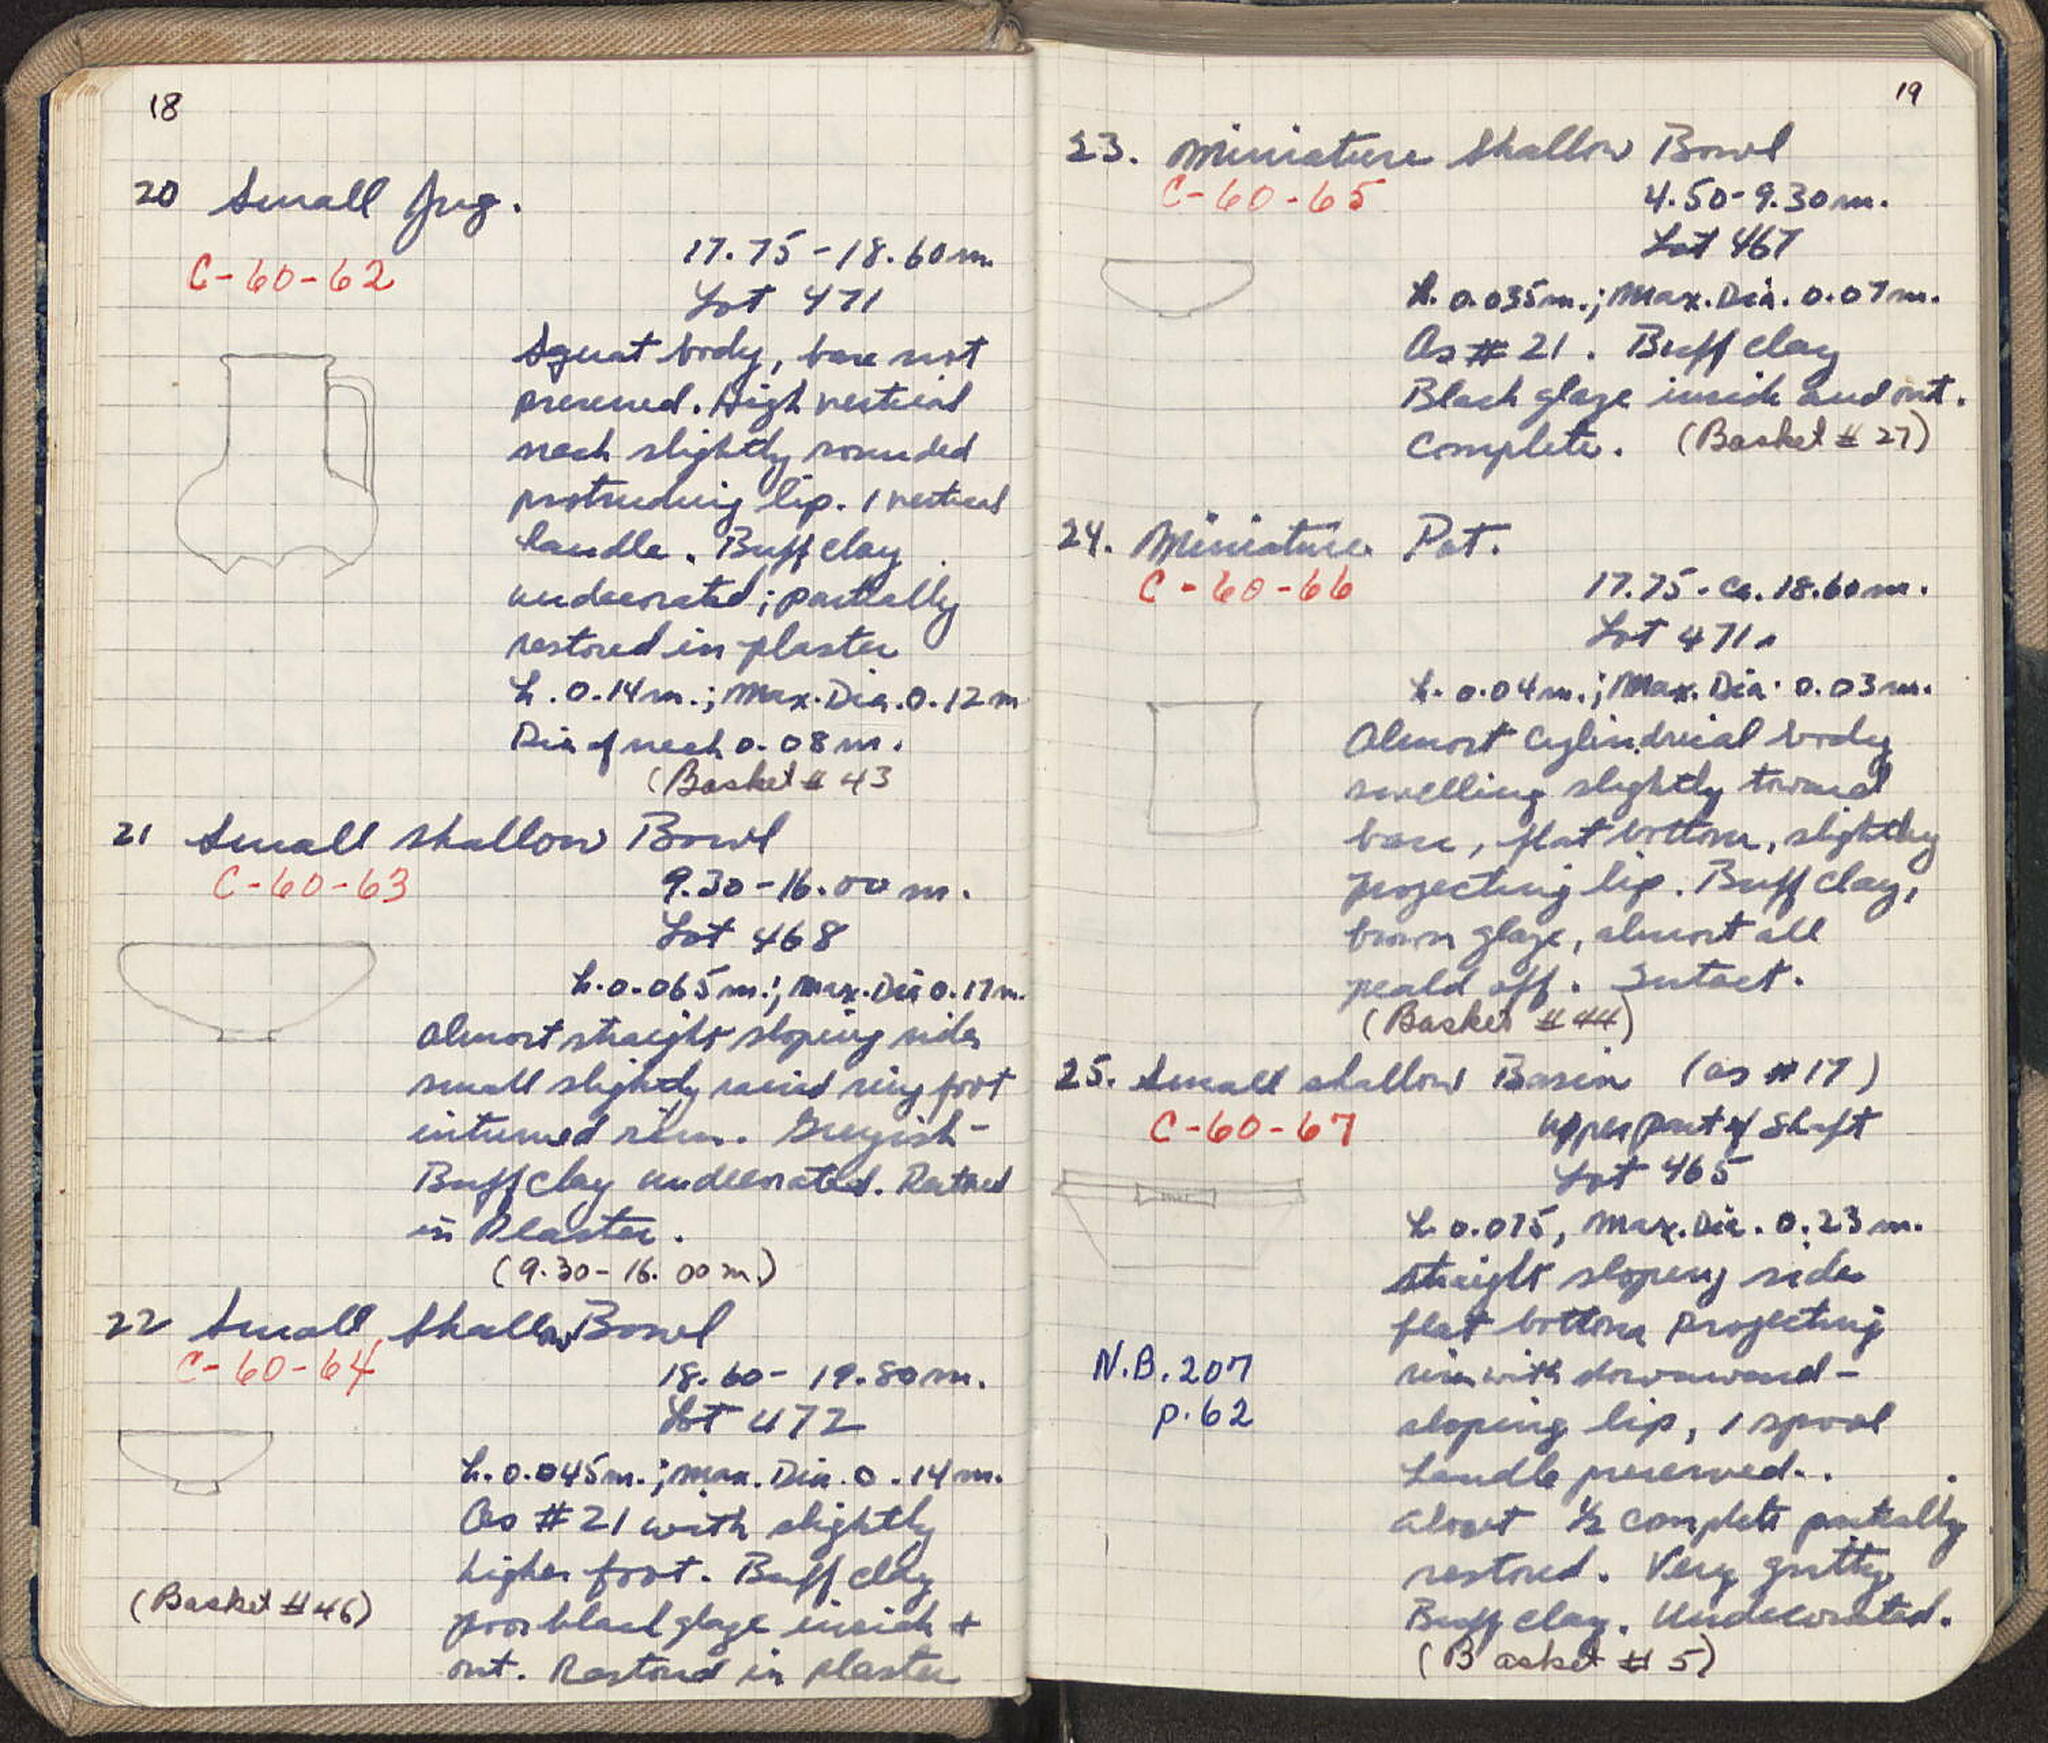 18
20 Small Jug.
C-60-62
17.75-18.60m.
Lot 471
Squat body, base not
preserved. High vertical
neck slightly rounded
protruding lip. 1 vertical
handle. Buff clay
undecorated; partially
restored in plaster
h. 0.14m.; Max. Dia. 0.12m
Dia of neck 0.08m.
(Basket #43
21 Small shallow Bowl
C-60-63
9.30-16.00m.
Lot 468
h. 0.065m.; Max. Dia 0.17m.
Almost straight sloping sides
small slightly raised ring foot
inturned rim. Greyish-
Buff clay undecorated. Restored
in Plaster.
(9.30-16.00m.)
22 Small Shallow Bowl
C-60-64
18.60-19.80m.
Lot 472
h. 0.045m.; Max. Dia. 0.14m.
As #21 with slightly
higher foot. Buff clay
(Basket #46)
poor black glaze inside +
out. Restored in plaster
19
23. Miniature Shallow Bowl
C-60-65
4.50-9.30m.
Lot 467
h. 0.035m.; Max. Dia. 0.07m.
As #21. Buff clay
Black glaze inside and out.
Complete. (Basket #27)
24. Miniature Pot.
C-60-66
17.75-ca. 18.60m.
Lot 471.
h. 0.04m.; Max. Dia. 0.03m.
Almost Cylindrical body
swelling slightly toward
base, flat bottom, slightly
projecting lip. Buff clay,
brown glaze, almost all
peald off. Intact.
(Basket #44)
25. Small shallow Basin (as #17)
C-60-67
Upper part of Shaft
Lot 465
h 0.075, Max. Dia. 0.23m.
straight sloping sides
flat bottom projecting
N.B. 207
p. 62
rim with downward-
sloping lip, 1 spool
handle preserved.
About 1/2 complete partially
restored. Very gritty
Buff clay. Undecorated.
(Basket #5)